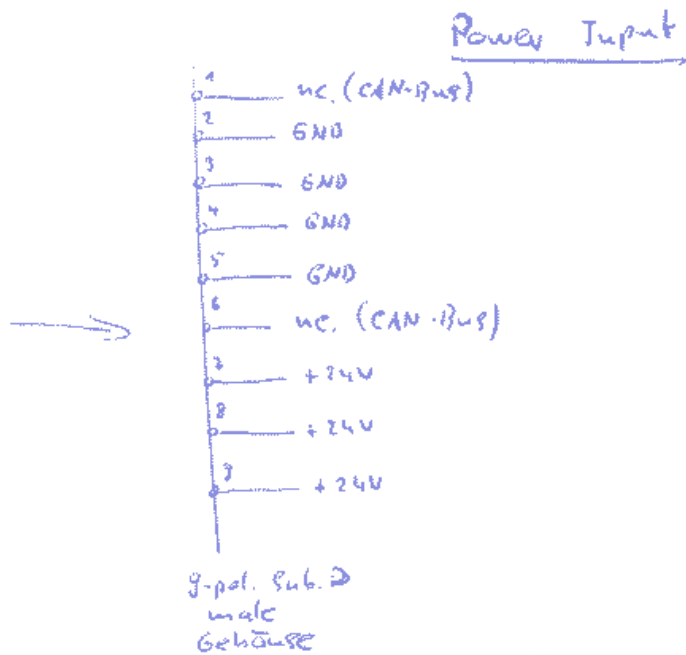 Power Input
1 nc. (CAN-Bus)
2 GND
3 GND
4 GND
5 GND
6 nc. (CAN-Bus)
7 +24V
8 +24V
9 +24V
9-pol. Sub. D
male
Gehäuse